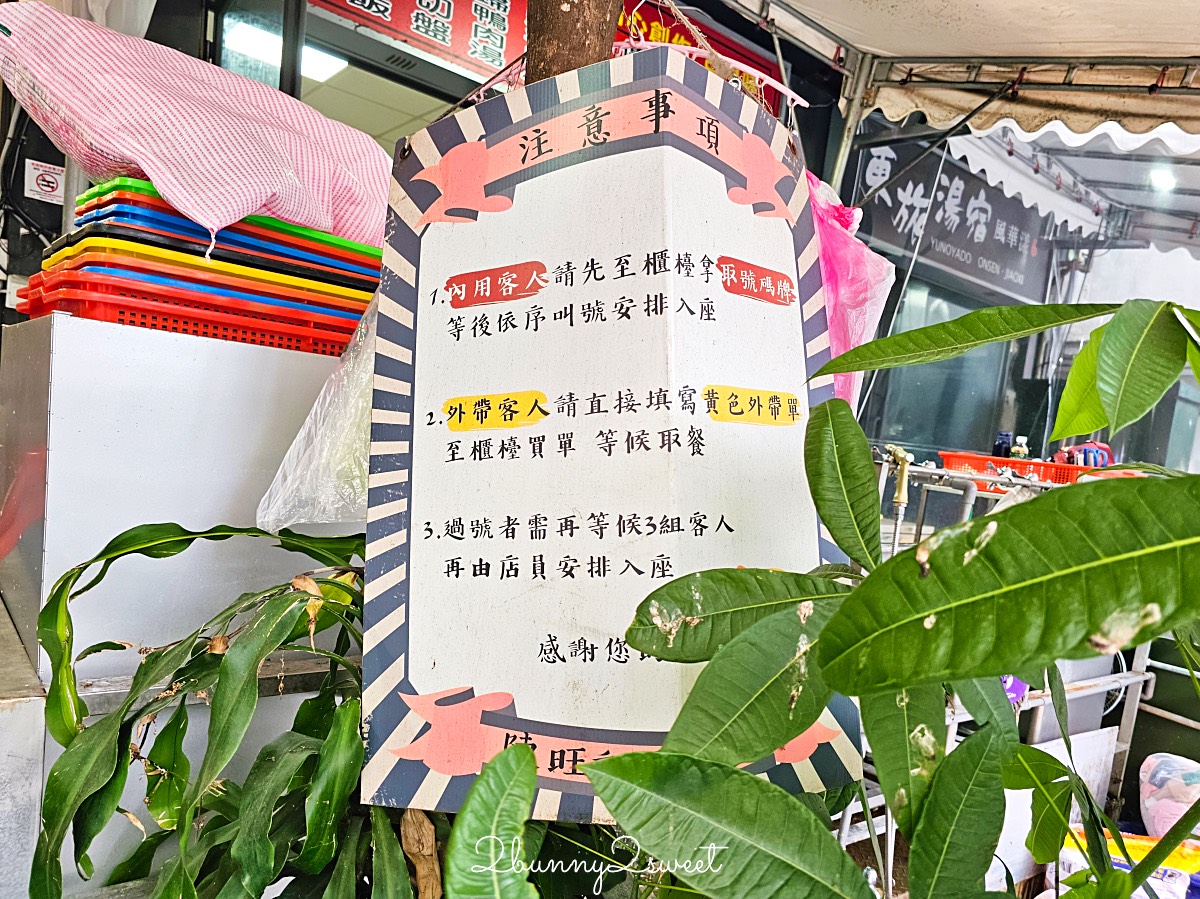 鴨肉湯
切盤
飯
注意事項
1.內用客人請先至櫃檯拿取號碼牌
等後依序叫號安排入座
2.外帶客人請直接填寫黃色外帶單
至櫃檯買單 等候取餐
3.過號者需再等候3組客人
再由店員安排入座
感謝您
陳旺
東旅湯宿 風華
YUNOYADO ONSEN·JIAOXI
2bunny2sweet